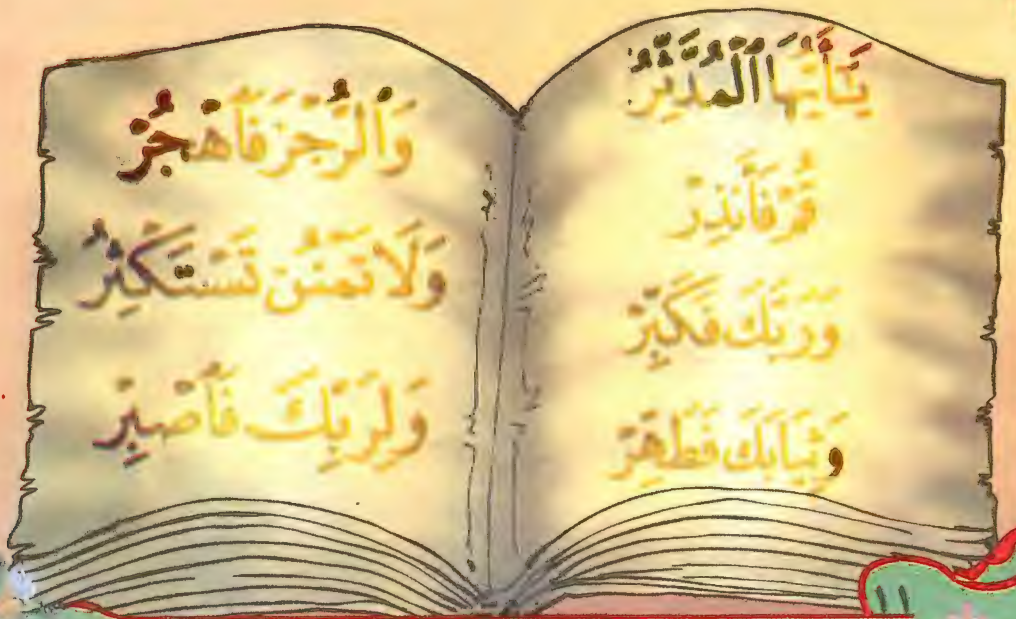 يَـٰٓأَيُّهَا ٱلْمُدَّثِّرُ
قُمْ فَأَنذِرْ
وَرَبَّكَ فَكَبِّرْ
وَثِيَابَكَ فَطَهِّرْ
وَٱلرُّجْزَ فَٱهْجُرْ
وَلَا تَمْنُن تَسْتَكْثِرُ
وَلِرَبِّكَ فَٱصْبِرْ
١١